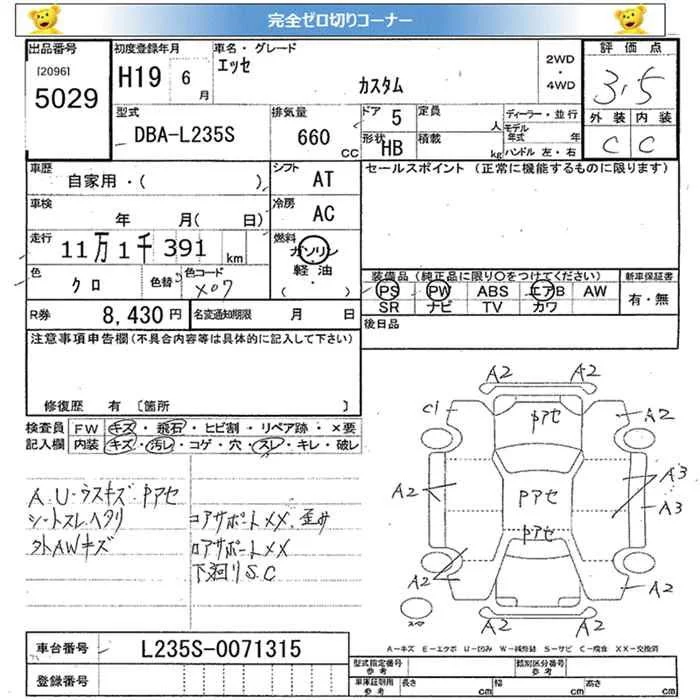 完全ゼロ切りコーナー
出品番号 初度登録年月 車名・グレード 評価点
[2096] 5029
H19 6月
エッセ カスタム
2WD・4WD
3.5
外装 内装
C C
型式 DBA-L235S
排気量 660 CC
ドア 5 定員 人
形状 HB 積載 kg
ディーラー・並行
モデル年式 年
ハンドル 左・右
車歴 自家用・( )
シフト AT
セールスポイント (正常に機能するものに限ります)
車検 年 月( 日)
冷房 AC
走行 11万1千391 km
燃料 ガソリン 軽油 ( )
色 クロ 色替 色コード X07
装備品 (純正品に限り○をつけてください) 新車保証書
PS PW ABS エアB AW 有・無
SR ナビ TV カワ
R券 8,430円 名変通知期限 月 日
後日品
注意事項申告欄(不具合内容等は具体的に記入して下さい)
修復歴 有 〔箇所 〕
検査員記入欄 FW キズ・飛石・ヒビ割・リペア跡・×要
内装 キズ・汚レ・コゲ・穴・スレ・キレ・破レ
A.U・ウスキズ・Pアセ
シートスレ.ヘタリ コアサポートXX.歪み
外AWキズ ロアサポートXX
下廻りS.C
A2 A2
C1 Pアセ A2
A2 Pアセ A3
A3
Pアセ
A2 A2
A2 A2
スペア
A-キズ E-エクボ U-凹み W-補修跡 S-サビ C-腐食 XX-交換済
車台番号 L235S-0071315
登録番号
型式指定番号 参考 類別区分番号 参考
車庫証明用 参考 長さ cm 幅 cm 高さ cm